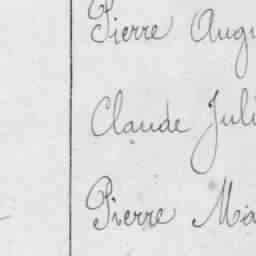 Pierre Augu
Claude Juli
Pierre Ma